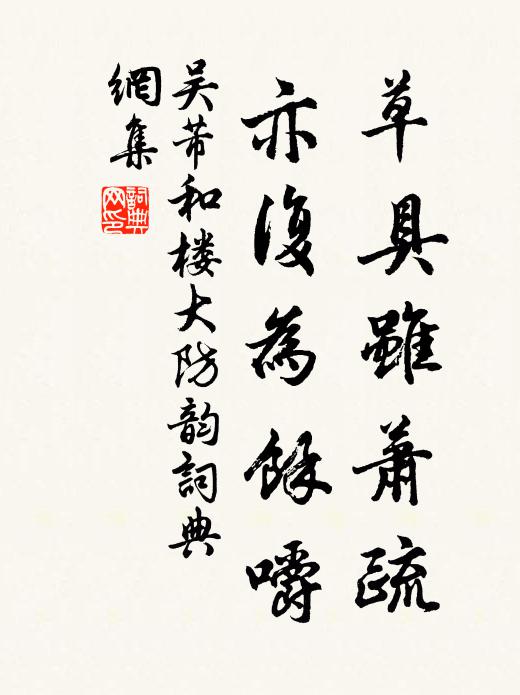 草具雖蕭疏
亦復為餘嚼
吴芾和楼大防韵詞典
網集
詞典網印